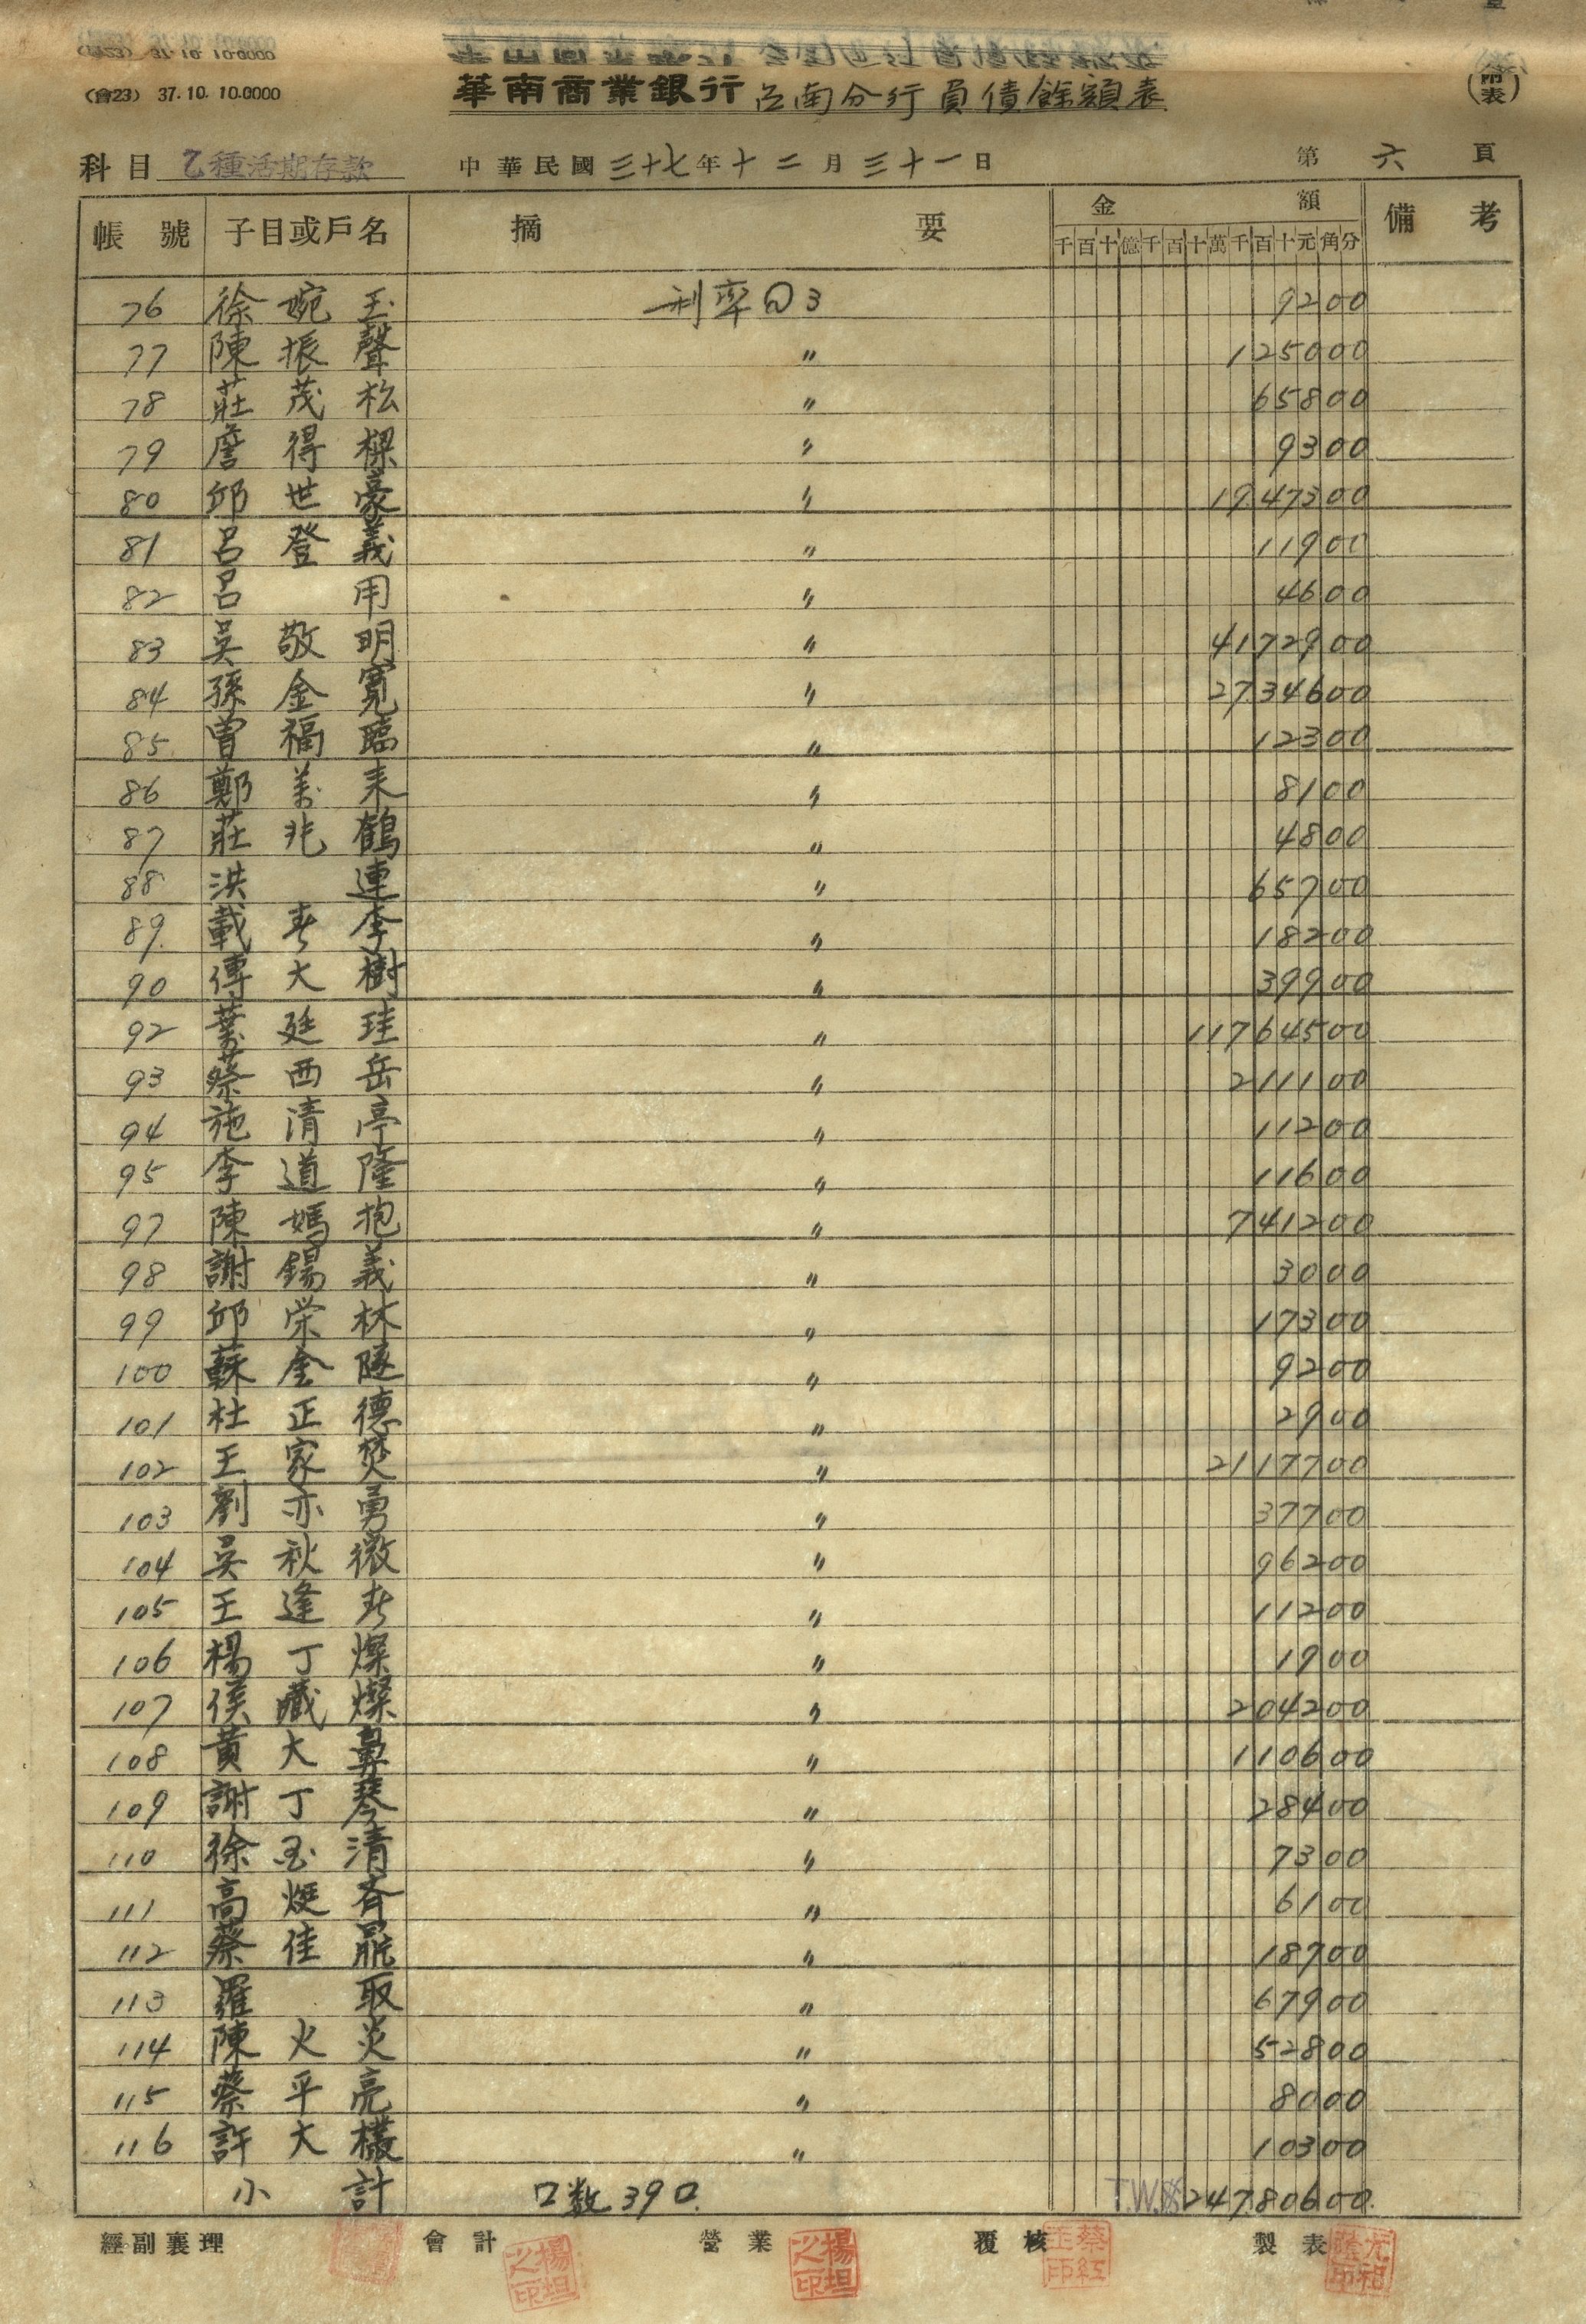 (會23) 37.10. 10.0000
華南商業銀行 台南分行 負債餘額表
(附表)
科目 乙種活期存款 中華民國三十七年十二月三十一日 第六頁
帳號 子目或戶名 摘要 金額 備考
千百十億千百十萬千百十元角分
76 徐婉玉 利率@3 9200
77 陳振聲 〃 125000
78 莊茂松 〃 65800
79 詹得樑 〃 9300
80 邱世豪 〃 1947300
81 呂登義 〃 11900
82 呂用 〃 4600
83 吳敬明 〃 4172900
84 孫金寬 〃 2734600
85 曾福臨 〃 12300
86 鄭萬來 〃 8100
87 莊兆鶴 〃 4800
88 洪連 〃 65700
89 載春李 〃 18200
90 傅大樹 〃 39900
92 葉廷珪 〃 11764500
93 蔡西岳 〃 211100
94 施清亭 〃 11200
95 李道隆 〃 11600
97 陳媽抱 〃 741200
98 謝錫義 〃 3000
99 邱荣林 〃 17300
100 蘇金隧 〃 9200
101 杜正德 〃 2900
102 王家焚 〃 2117700
103 劉亦勇 〃 37700
104 吳秋微 〃 96200
105 王逢春 〃 11200
106 楊丁燦 〃 1900
107 侯藏燦 〃 204200
108 黃大鼻 〃 110600
109 謝丁琴 〃 28400
110 徐玉清 〃 7300
111 高斉 〃 6100
112 蔡佳 〃 18700
113 羅取 〃 67900
114 陳火炎 〃 52800
115 蔡平亮 〃 8000
116 許大 〃 10300
小計 口数390. T.W.$24780600.
經副襄理 會計 營業 覆核 製表
楊坦之印 楊坦之印 蔡紅玉印